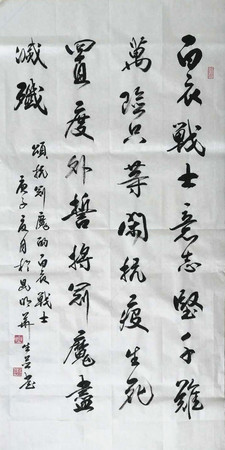 白衣戰士意志堅千難
萬險只等閑抗疫生死
置度外誓將冠魔盡
滅殲
頌抗冠魔的白衣戰士
庚子夏月於昆明